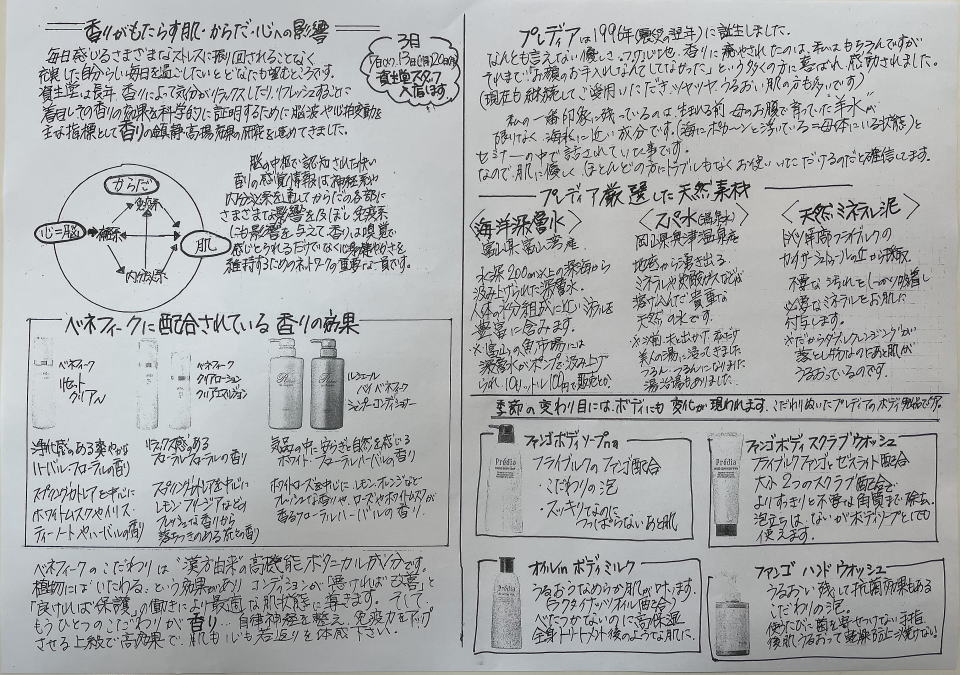 香りがもたらす肌・からだ・心への影響
毎日感じるさまざまなストレスに振り回されることなく
充実した自分らしい毎日を過ごしたいとどなたも望むところです。
資生堂は長年、香りによって気分がリラックスしたりリフレッシュすることに
着目してその香りの効果を科学的に証明するために脳波や心拍変動を
主な指標として香りの鎮静・高揚効果の研究を進めてきました。
3月
資生堂スタッフ
入店します
脳の中枢で認知された快い
香りの感覚情報は神経系や
内分泌系を通してからだの各部に
さまざまな影響を及ぼし免疫系
にも影響を与えて香りは嗅覚で
感じとられるだけでなく心身の健やかさを
維持するためのネットワークの重要な一員です。
からだ
免疫系
心=脳
神経系
肌
内分泌系
ベネフィークに配合されている香りの効果
ベネフィーク
リセット
クリアN
ベネフィーク
クリアローション
クリアエマルジョン
レジェール
バイ ベネフィーク
シャンプーコンディショナー
浄化感のある爽やかな
ハーバルフローラルの香り
スプリングカトレアを中心に
ホワイトムスクやイリス・
ティーノートやハーバルの香り
リラックス感のある
フローラルフローラルの香り
スプリングカトレアを中心に
レモン・フリージアなどの
フレッシュな香りから
落ちつきのある花との香り
気品の中に安らぎと自然を感じる
ホワイト・フローラルハーバルの香り
ホワイトローズを中心に レモン、オレンジなど
フレッシュな香りや、ローズやホワイトムスクが
香るフローラルハーバルの香り.
ベネフィークのこだわりは"漢方由来の高機能ボタニカル成分です。
植物には"いたわる"という効果があり コンディションが「悪ければ改善」と
「良ければ保護」の働きにより最適な肌状態に導きます。そして
もうひとつのこだわりが香り…自律神経を整え、免疫力をアップ
させる上級で高効果で、肌も心も若返りを体感下さい。
プレディアは1996年に誕生しました。
なんとも言えない優しさ、フワリとした香りに癒やされたのは、私はもちろんですが
それまで"お顔のお手入れなんてしてなかった"という多くの方に喜ばれ、感動されました。
(現在も継続してご愛用いただきツヤツヤ、うるおい、肌の方も多いです)
私の一番印象に残っているのは、生まれる前、母のお腹で育っていた"羊水"が
限りなく、海水に近い成分です。(海にポカ〜ンと浮いている=母体にいる状態)と
セミナーの中で話されていた事です。
なので、肌に優しく、ほとんどの方にトラブルもなくお使いいただけるのだと確信してます。
プレディア厳選した天然素材
〈海洋深層水〉
富山県富山湾産
水深200m以上の深海から
汲み上げられた深層水。
人体の水分組成に近いミネラルを
豊富に含みます。
※富山の魚市場には
深層水がポンプで汲み上げ
られ、10リットル10円で販売とか
〈スパ水(温泉水)〉
岡山県奥津温泉産
地底から湧き出る
ミネラルや炭酸ガスなどが
溶け込んだ貴重な
天然の水です。
美人の湯に浸ってきました
つるん・つるんになりました
湯治場もありました.
〈天然ミネラル泥〉
ドイツ軍高フライブルクの
カイザーシュトゥールの丘から採取。
不要な汚れをしっかり吸着し
必要なミネラルをお肌に
付与します。
※だからダブルクレンジングがない
落とし切りなのにあと肌が
うるおっているのです.
季節の変わり目には、ボディにも変化が現われます.こだわりぬいたプレディアのボディ製品でケア.
Prédia
ファンゴ ボディソープna
フライブルクのファンゴ配合
・こだわりの泡
・スッキリなのに
つっぱらないあと肌
Prédia
ファンゴ ボディ スクラブ ウォッシュ
フライブルクファンゴとゼオライト配合
大小2つのスクラブ配合で
よりすっきりと不要な角質まで除去。
泡立ちは、ないがボディソープとしても
使えます.
Prédia
オイルin ボディミルク
うるおうなめらか肌がつづきます.
(白ワインオイル配合)
べたつかないのに高保湿
全身トリートメント後のような肌に.
ファンゴ ハンドウォッシュ
うるおい残して抗菌効果もある
こだわりの泡。
使うたびに菌を寄せつけない手指